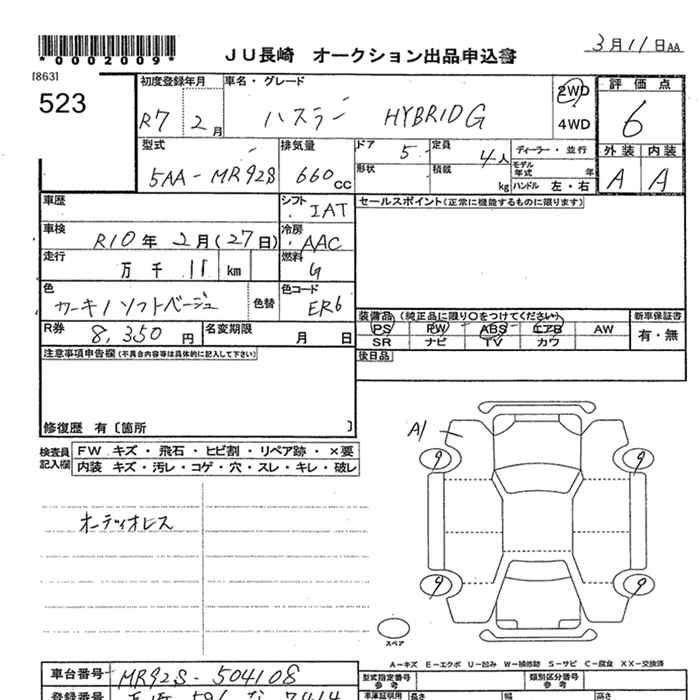 *0002009*
JU長崎 オークション出品申込書
3月11日AA
[863]
523
初度登録年月 車名・グレード 評価点
R7 2月 ハスラー HYBRID G 2WD 4WD 6
型式 排気量 ドア 5 定員 4人 ディーラー・並行 外装 内装
5AA-MR92S 660cc 形状 積載 kg モデル年式 年 ハンドル 左・右 A A
車歴 シフト IAT セールスポイント(正常に機能するものに限ります)
車検 R10年2月(27日) 冷房 AAC
走行 万千 11 km 燃料 G
色 色替 色コード ER6
ソフトベージュ
装備品(純正品に限り○をつけてください) 新車保証書
R券 8,350円 名変期限 月 日 PS PW ABS エアB AW 有・無
SR ナビ TV カワ
注意事項申告欄(不具合内容等は具体的に記入して下さい) 後日品
修復歴 有〔箇所 〕
検査員記入欄 FW キズ・飛石・ヒビ割・リペア跡・×要
内装 キズ・汚レ・コゲ・穴・スレ・キレ・破レ
A1
9 9
オーディオレス
9 9
スペア
A-キズ E-エクボ U-凹み W-補修跡 S-サビ C-腐食 XX-交換済
車台番号 MR92S-504108 型式指定番号 類別区分番号
参考
登録番号 長崎 581 車庫証明用 長さ 幅 高さ